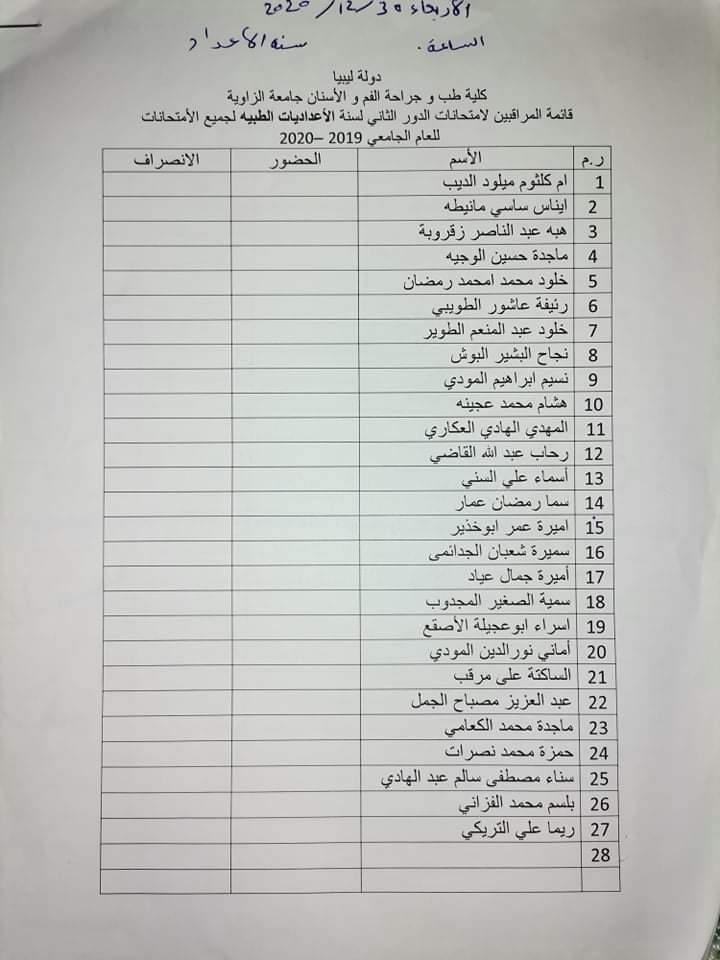 الاربعاء 30/12/2020
الساعة. سنه الأعداد
دولة ليبيا
كلية طب و جراحة الفم و الأسنان جامعة الزاوية
قائمة المراقبين لامتحانات الدور الثاني لسنة الأعداديات الطبيه لجميع الأمتحانات
للعام الجامعي 2019 –2020
ر.م الأسم الحضور الانصراف
1 ام كلثوم ميلود الديب
2 ايناس ساسي مانيطه
3 هبه عبد الناصر زقروبة
4 ماجدة حسين الوجيه
5 خلود محمد امحمد رمضان
6 رئيفة عاشور الطويبي
7 خلود عبد المنعم الطوير
8 نجاح البشير البوش
9 نسيم ابراهيم المودي
10 هشام محمد عجينه
11 المهدي الهادي العكاري
12 رحاب عبد الله القاضي
13 أسماء علي السني
14 سما رمضان عمار
15 اميرة عمر ابوخذير
16 سميرة شعبان الجدائمى
17 أميرة جمال عياد
18 سمية الصغير المجدوب
19 اسراء ابوعجيلة الأصقع
20 أماني نورالدين المودي
21 الساكتة على مرقب
22 عبد العزيز مصباح الجمل
23 ماجدة محمد الكعامي
24 حمزة محمد نصرات
25 سناء مصطفى سالم عبد الهادي
26 بلسم محمد الفزاني
27 ريما علي التريكي
28